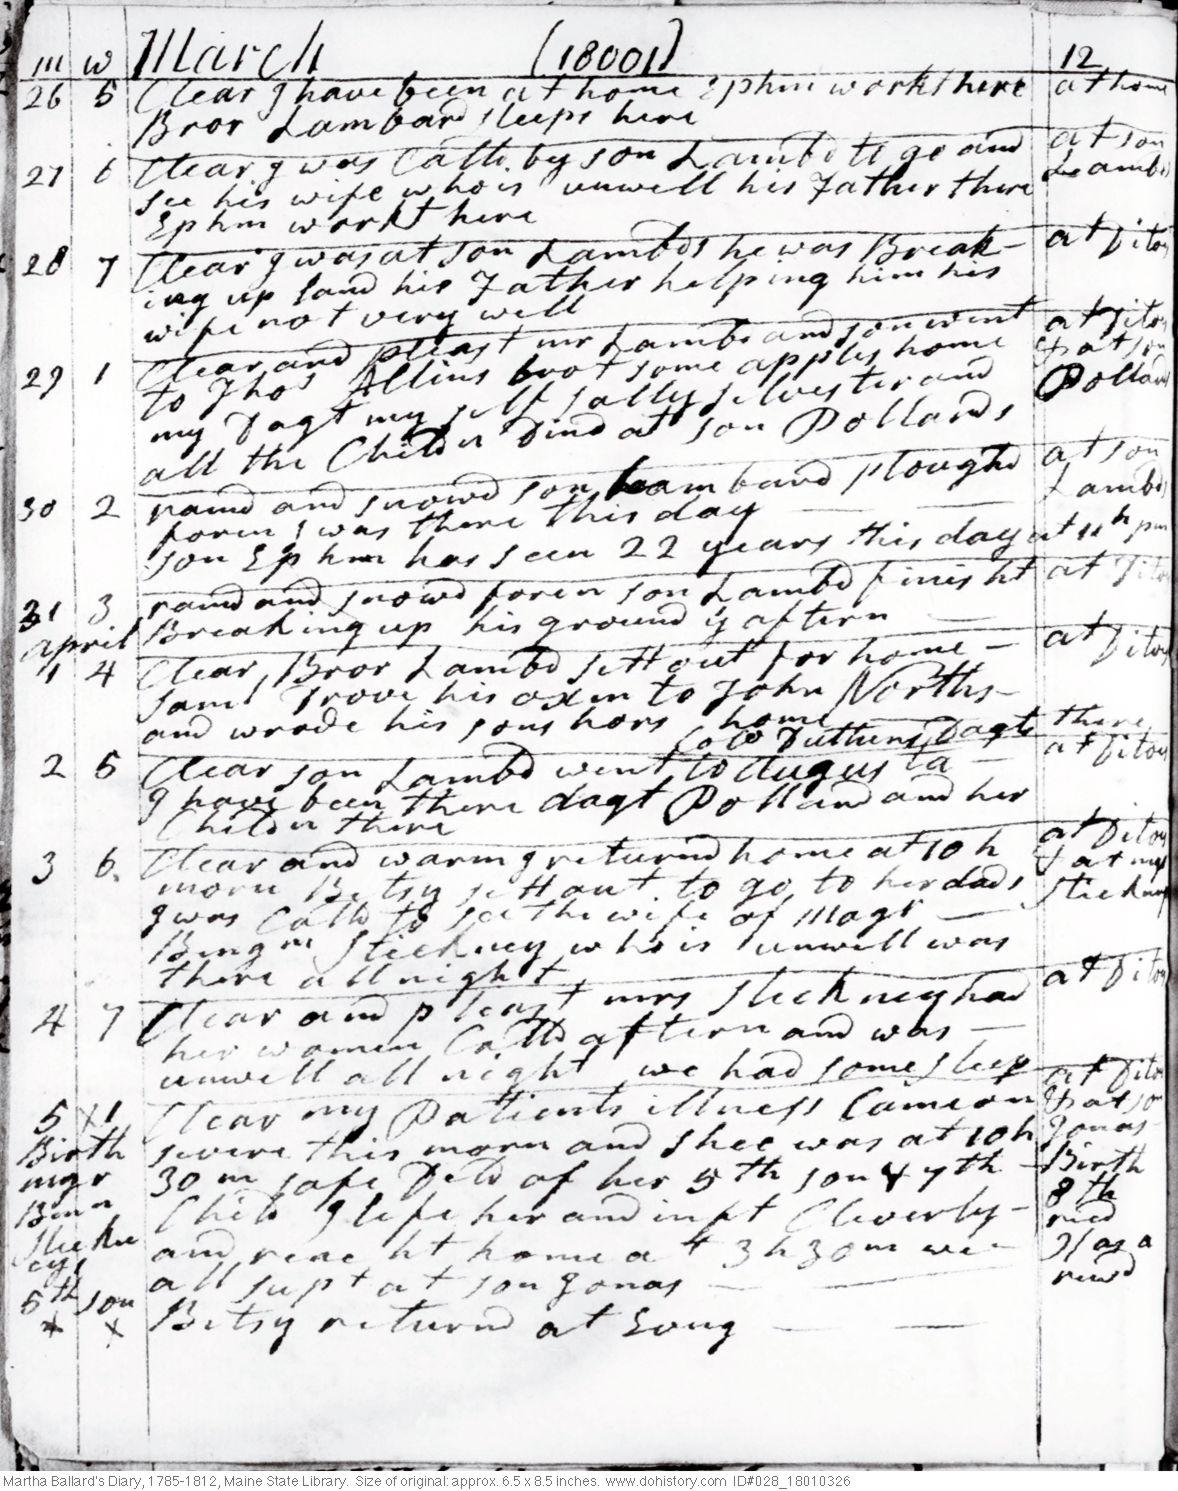 m w March (18001) 12
26 5 Clear I have been at home Ephm workt here at home
Bror Lambard sleeps here
27 6 Clear I was Calld by son Lambd to go and at son
see his wife who is unwell his Father there Lambd
Ephm workt here
28 7 Clear I was at son Lambds he was Break- at Ditos
ing up land his Father helping him his
wife not very well
29 1 Clear and pleast mr Lambd and son went at Ditos
to Thos Allins brot some apples home & at son
my Dagt my self sally silvester and Pollards
all the Childn Dind at son Pollards
30 2 raind and snowd son Lambard plought at son
foren I was there this day Lambds
son Ephm has seen 22 years this day at 11h pm
31 3 raind and snowd foren son Lambd finisht at Ditos
Breaking up his ground ys aftern
april
1 4 Clear, Bror Lambd sett out for home - at Ditos
saml Drove his oxen to John Norths -
and wrode his sons hors home
Colo Duttuns Dagts there
2 5 Clear son Lambd went to Augusta - at Ditos
I have been there dagt Pollard and her
Childn there
3 6. Clear and warm I returnd home at 10 h at Ditos
morn Betsy sett out to go to her dads & at mr
I was Calld to see the wife of Magr Stickneys
Bengmn Stickney who is unwell was
there all night
4 7 Clear and pleast mrs Stickney had at Ditos
her women Calld aftern and was -
unwell all night we had some sleep
5 x1 Clear my Patients illness Came on at Ditos
& at son
Birth severe this morn and shee was at 10 h Jonas
mgr 30 m safe Deld of her 5th son & 7th - Birth
Benn Child I left her and inft Cleverly - 8th
Stickneys and reacht home at 3 h 30 m we -
5th son all supt at son Jonas
x x Betsy returnd at Evng